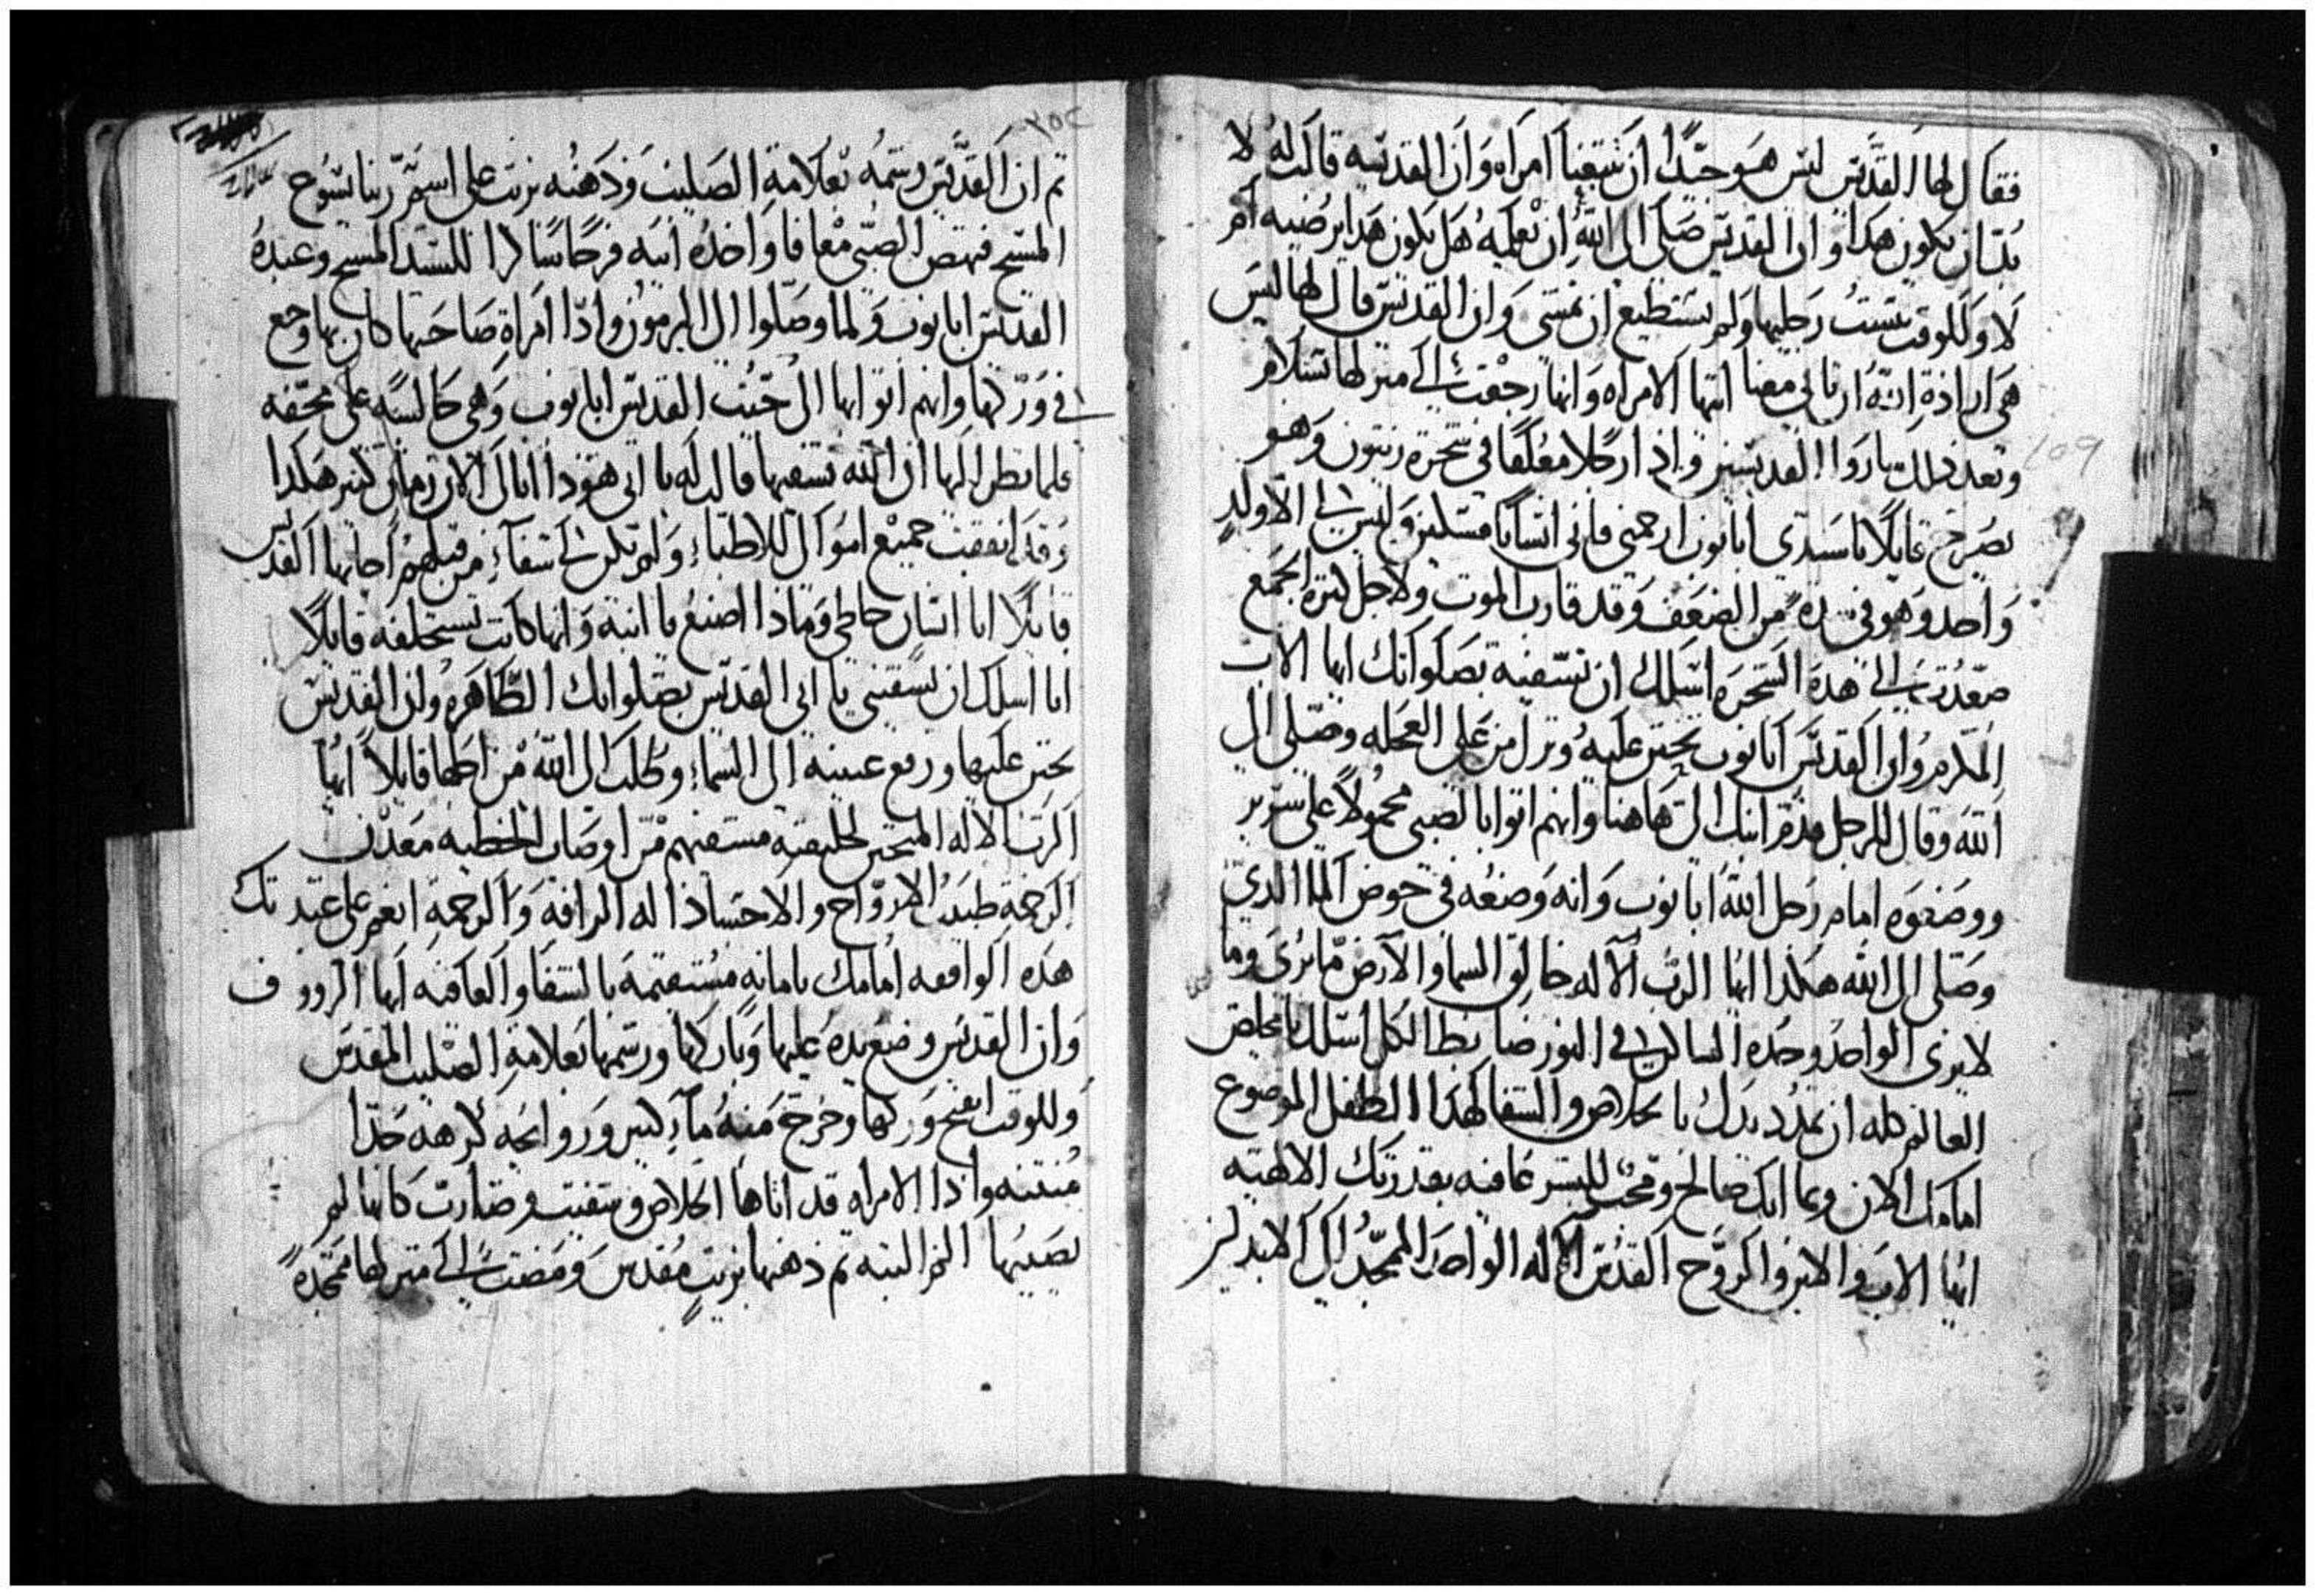 فقال لها القديس ليس هو جيدا ان تتبعنا امراه وان القديسه قالت له لا
بد ان يكون هكدا وان القديس صلى الى الله ان يعلمه هل يكون هدا يرضيه ام
لا وللوقت يبست رجليها ولم تستطيع ان تمشى وان القديس قال لها ليس
هى ارادة الله ان تاتى معنا ايتها الامراه وانها رجعت الى منزلها بسلام
وبعد دلك ساروا القديسين وادا رجلا معلقا فى شجرة زيتون وهو
يصرخ قايلا يا سيدى ابانوب ارحمنى فانى انسانا مسكين وليس لى الا ولد
واحد وهو فى شده من الضعف وقد قارب الموت ولاجل كثرة الجمع
صعدت الى هده الشجره اسلك ان تشفيه بصلواتك ايها الاب
المكرم وان القديس ابانوب تحنن عليه ونزل من على العجله وصلى الى
الله وقال للرجل قدم ابنك الى هاهنا وانهم اتوا بالصبى محمولا على سرير
ووضعوه امام رجل الله ابانوب وانه وضعه فى حوض الما الدى
وصلى الى الله هكدا ايها الرب الاله خالق السما والارض ما يرى وما
لا يرى الواحد وحده الساكن فى النور ضابط الكل اسلك يا مخلص
العالم كله ان تمدد يدك بالخلاص والشفا لهدا الطفل الموضوع
امامك الان وبما انك صالح ومحب للبشر عافيه بقدرتك الالهيه
ايها الاب والابن والروح القدس الاله الواحد الممجد الى الابد امين
٢٥٢
ثم ان القديس رشمه بعلامة الصليب ودهنه بزيت على اسم ربنا يسوع
المسيح فنهض الصبى معافا واخده ابيه فرحا شاكرا للسيد المسيح وعبده
القديس ابانوب ولما وصلوا الى البرمون وادا امراة صاحبها كان بها وجع
فى وركها وانهم اتوا بها الى حيث القديس ابانوب وهى جالسه على محفه
فلما نظر اليها ان الله يشفيها قالت له يا ابى هودا انا الى الان زمان كبير هكدا
وقد انفقت جميع اموالى للاطباء ولم تكن لى شفاء من قبلهم اجابها القديس
قايلا انا انسان خاطى وماذا اصنع يا ابنه وانها كانت تستحلفه قايلا
انا اسلك ان تشفينى يا ابى القديس بصلواتك الطاهره وان القديس
تحنن عليها ورفع عينيه الى السماء وطلب الى الله من اجلها قايلا ايها
الرب الاله المتحنن لخليقته مشفيهم من اوصاب الخطيه معدن
الرحمة طبيب الارواح والاجساد اله الرافه والرحمة انعم على عبدتك
هده الواقفه امامك بامانه مستقيمة بالشفا والعافيه ايها الرووف
وان القديس وضع يده عليها وباركها ورشمها بعلامة الصليب المقدس
وللوقت انفتح وركها وخرج منه ماء كثير وروايحه كرهه جدا
منتنه وادا الامراه قد اتاها الخلاص وشفيت وصارت كانها لم
يصيبها الم البته ثم دهنها بزيت مقدس ومضت الى منزلها ممجدة